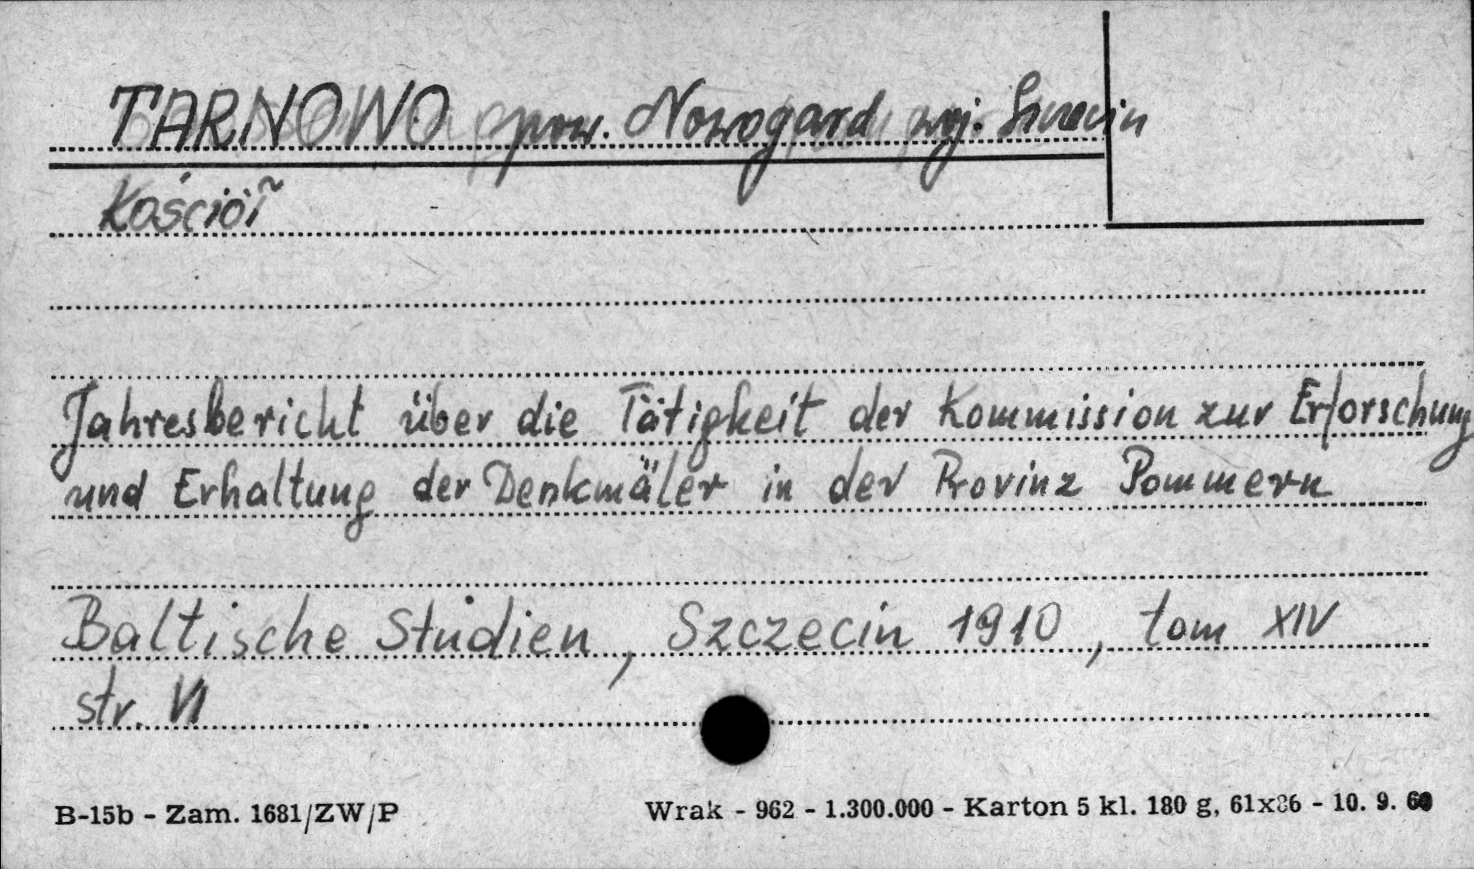 TARNOWO pow. Nowogard woj. Szczecin
Kościół
Jahresbericht über die Tätigkeit der Kommission zur Erforschung
und Erhaltung der Denkmäler in der Provinz Pommern
Baltische Studien, Szczecin 1910, tom XIV
str. VI
B-15b - Zam. 1681/ZW/P
Wrak - 962 - 1.300.000 - Karton 5 kl. 180 g, 61x86 - 10. 9. 60